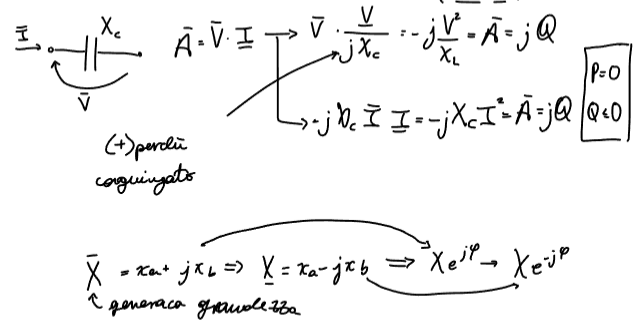 Ī X_c Ā = V̄ · I̲ → V̄ · V̲ / jX_c = -j V² / X_L = Ā = jQ
V̄ → -jX_c Ī I̲ = -jX_c I² = Ā = jQ
P=0
Q<0
(+) perchè
coniugato
X̄ = x_a + jx_b => X̲ = x_a - jx_b => Xe^{jφ} → Xe^{-jφ}
generica grandezza